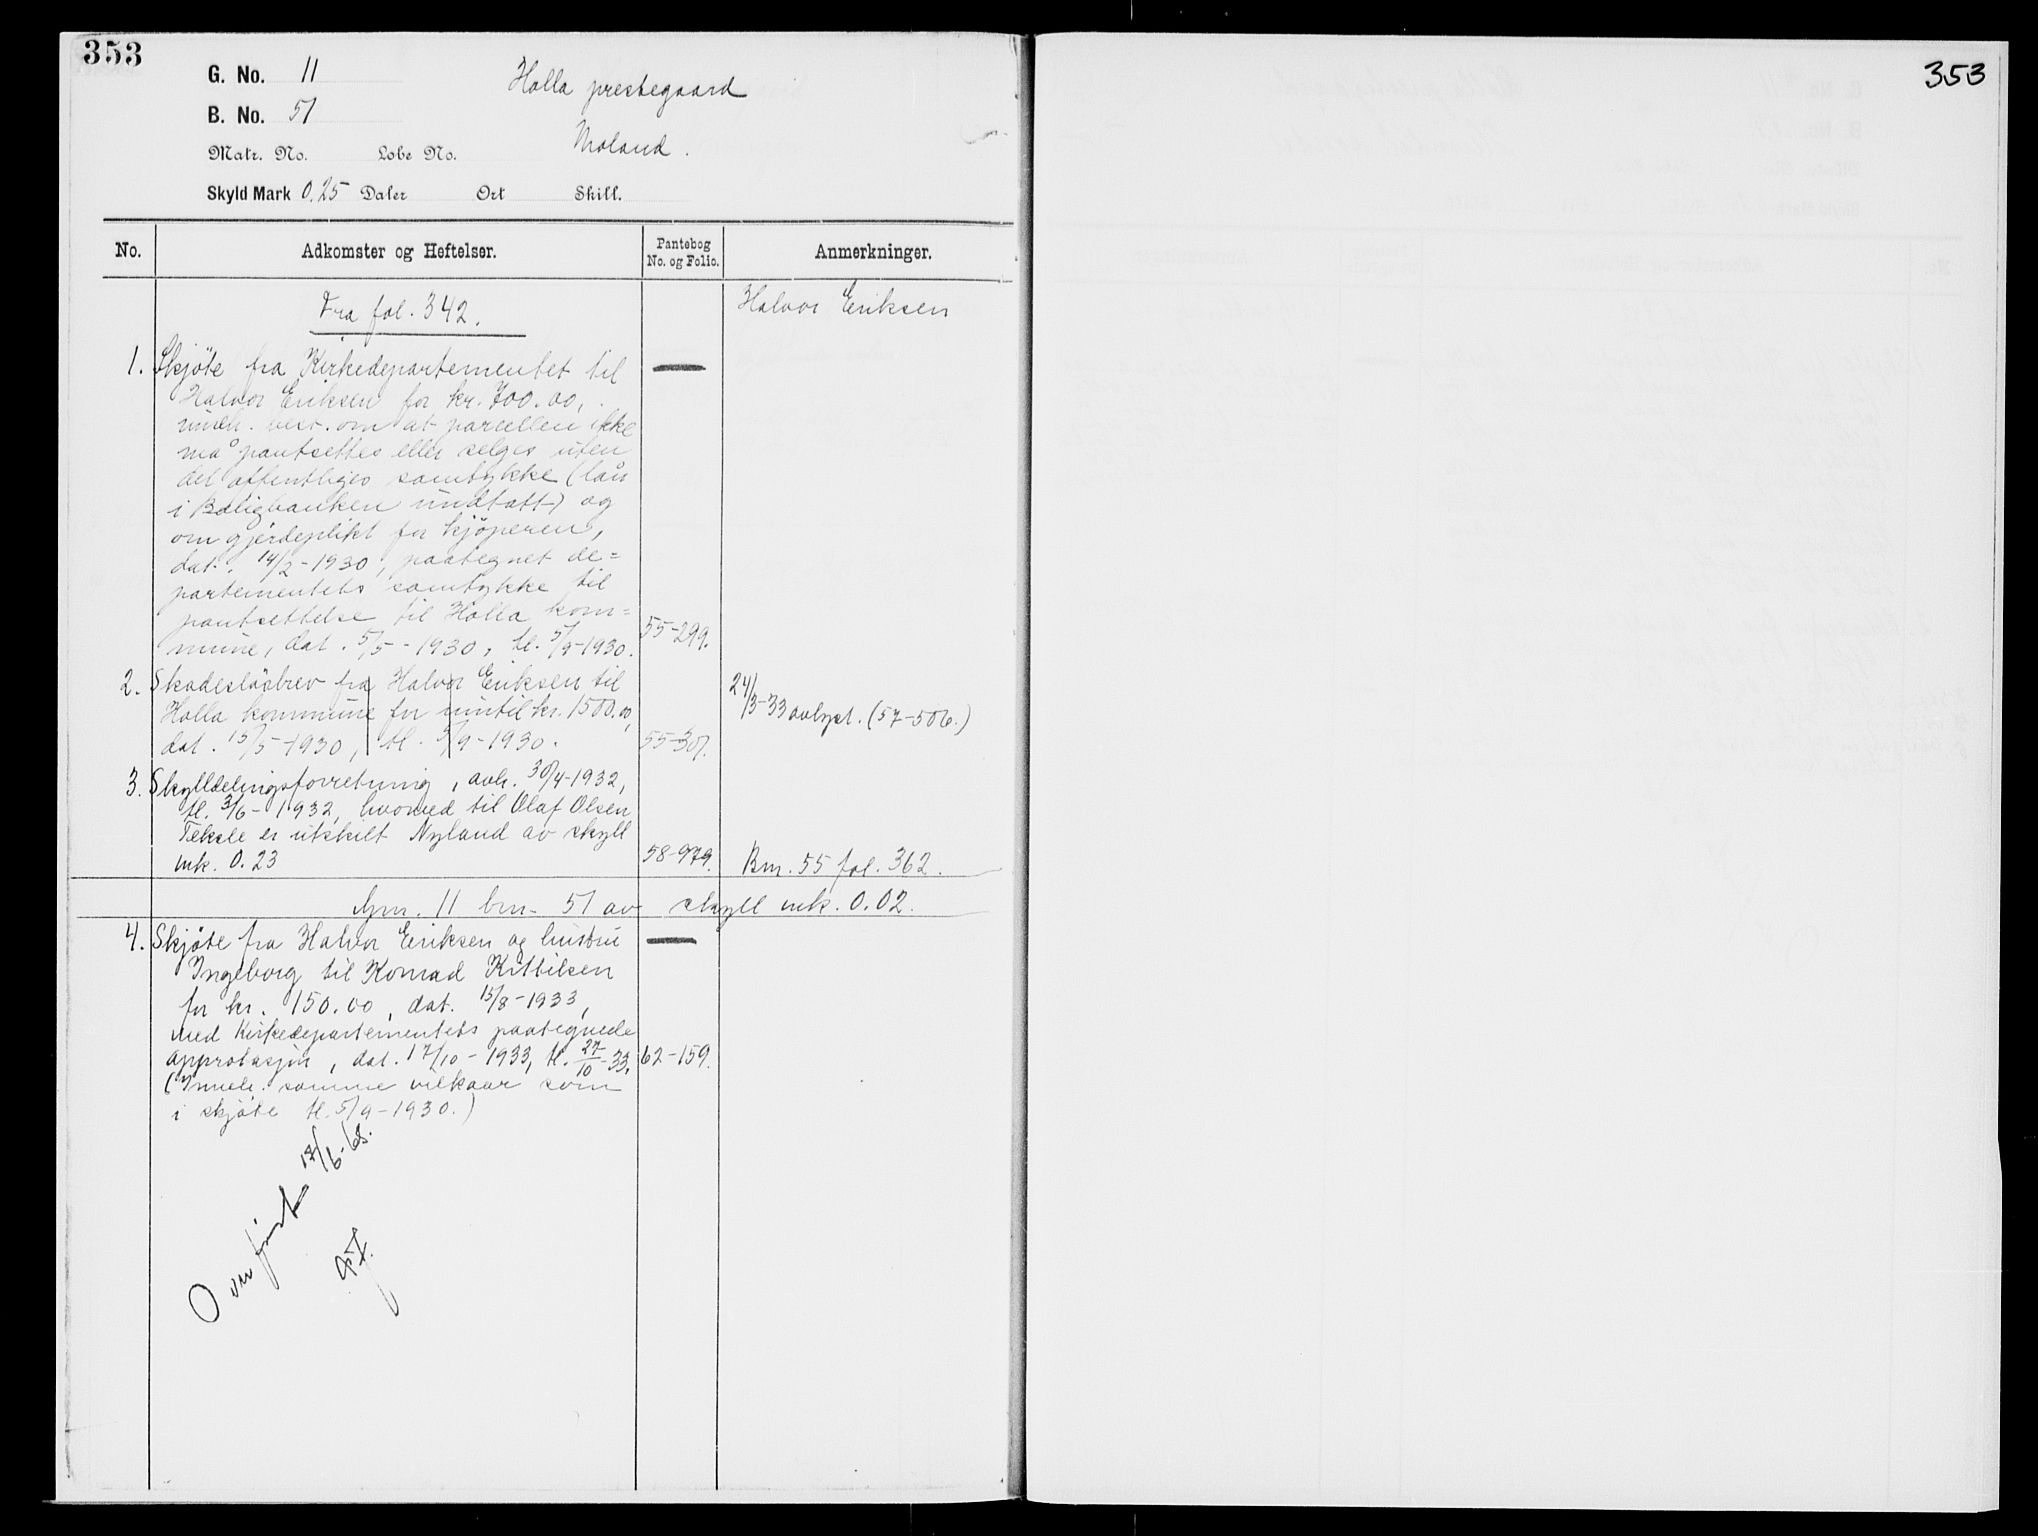 353
G. No. 11
Holla prestegaard
B. No. 51
Moland.
Matr. No. Løbe No.
Skyld Mark 0.25 Daler Ort Skill.
No. Adkomster og Heftelser. Pantebog No. og Folio. Anmerkninger.
Fra fol. 342.
Halvor Eriksen
1. Skjöte fra Kirkedepartementet til
Halvor Eriksen for kr. 700.00,
om at parcellen ikke
må pantsettes eller selges uten
det offentliges samtykke (lån
i Boligbanken undtatt) og
om gjerdeplikt for kjöperen,
dat. 14/2-1930, paategnet de=
partementets samtykke til
pantsettelse til Holla kom=
mune, dat. 5/5-1930, tl. 5/9-1930. 55-299.
2. Skadeslösbrev fra Halvor Eriksen til
Holla kommune for inntil kr. 1500.00,
dat. 15/5-1930, tl. 5/9-1930. 55-301.
24/3-33 avlyst. (57-506.)
3. Skylldelingsforretning, avh. 30/4-1932,
tl. 3/6-1932, hvorved til Olaf Olsen
Teksle er utskilt Nyland av skyll
mk. 0.23 58-979. Bnr. 55 fol. 362.
Gnr. 11 bnr. 51 av skyll mk. 0.02.
4. Skjöte fra Halvor Eriksen og hustru
Ingeborg til Konrad Kittilsen
for kr. 150.00, dat. 15/8-1933,
med Kirkedepartementets paategnede
approbasjon, dat. 17/10-1933, tl. 27/10-33. 62-159.
(Inneh. samme vilkaar som
i skjöte tl. 5/9-1930.)
Overfört 18/6-68.
353